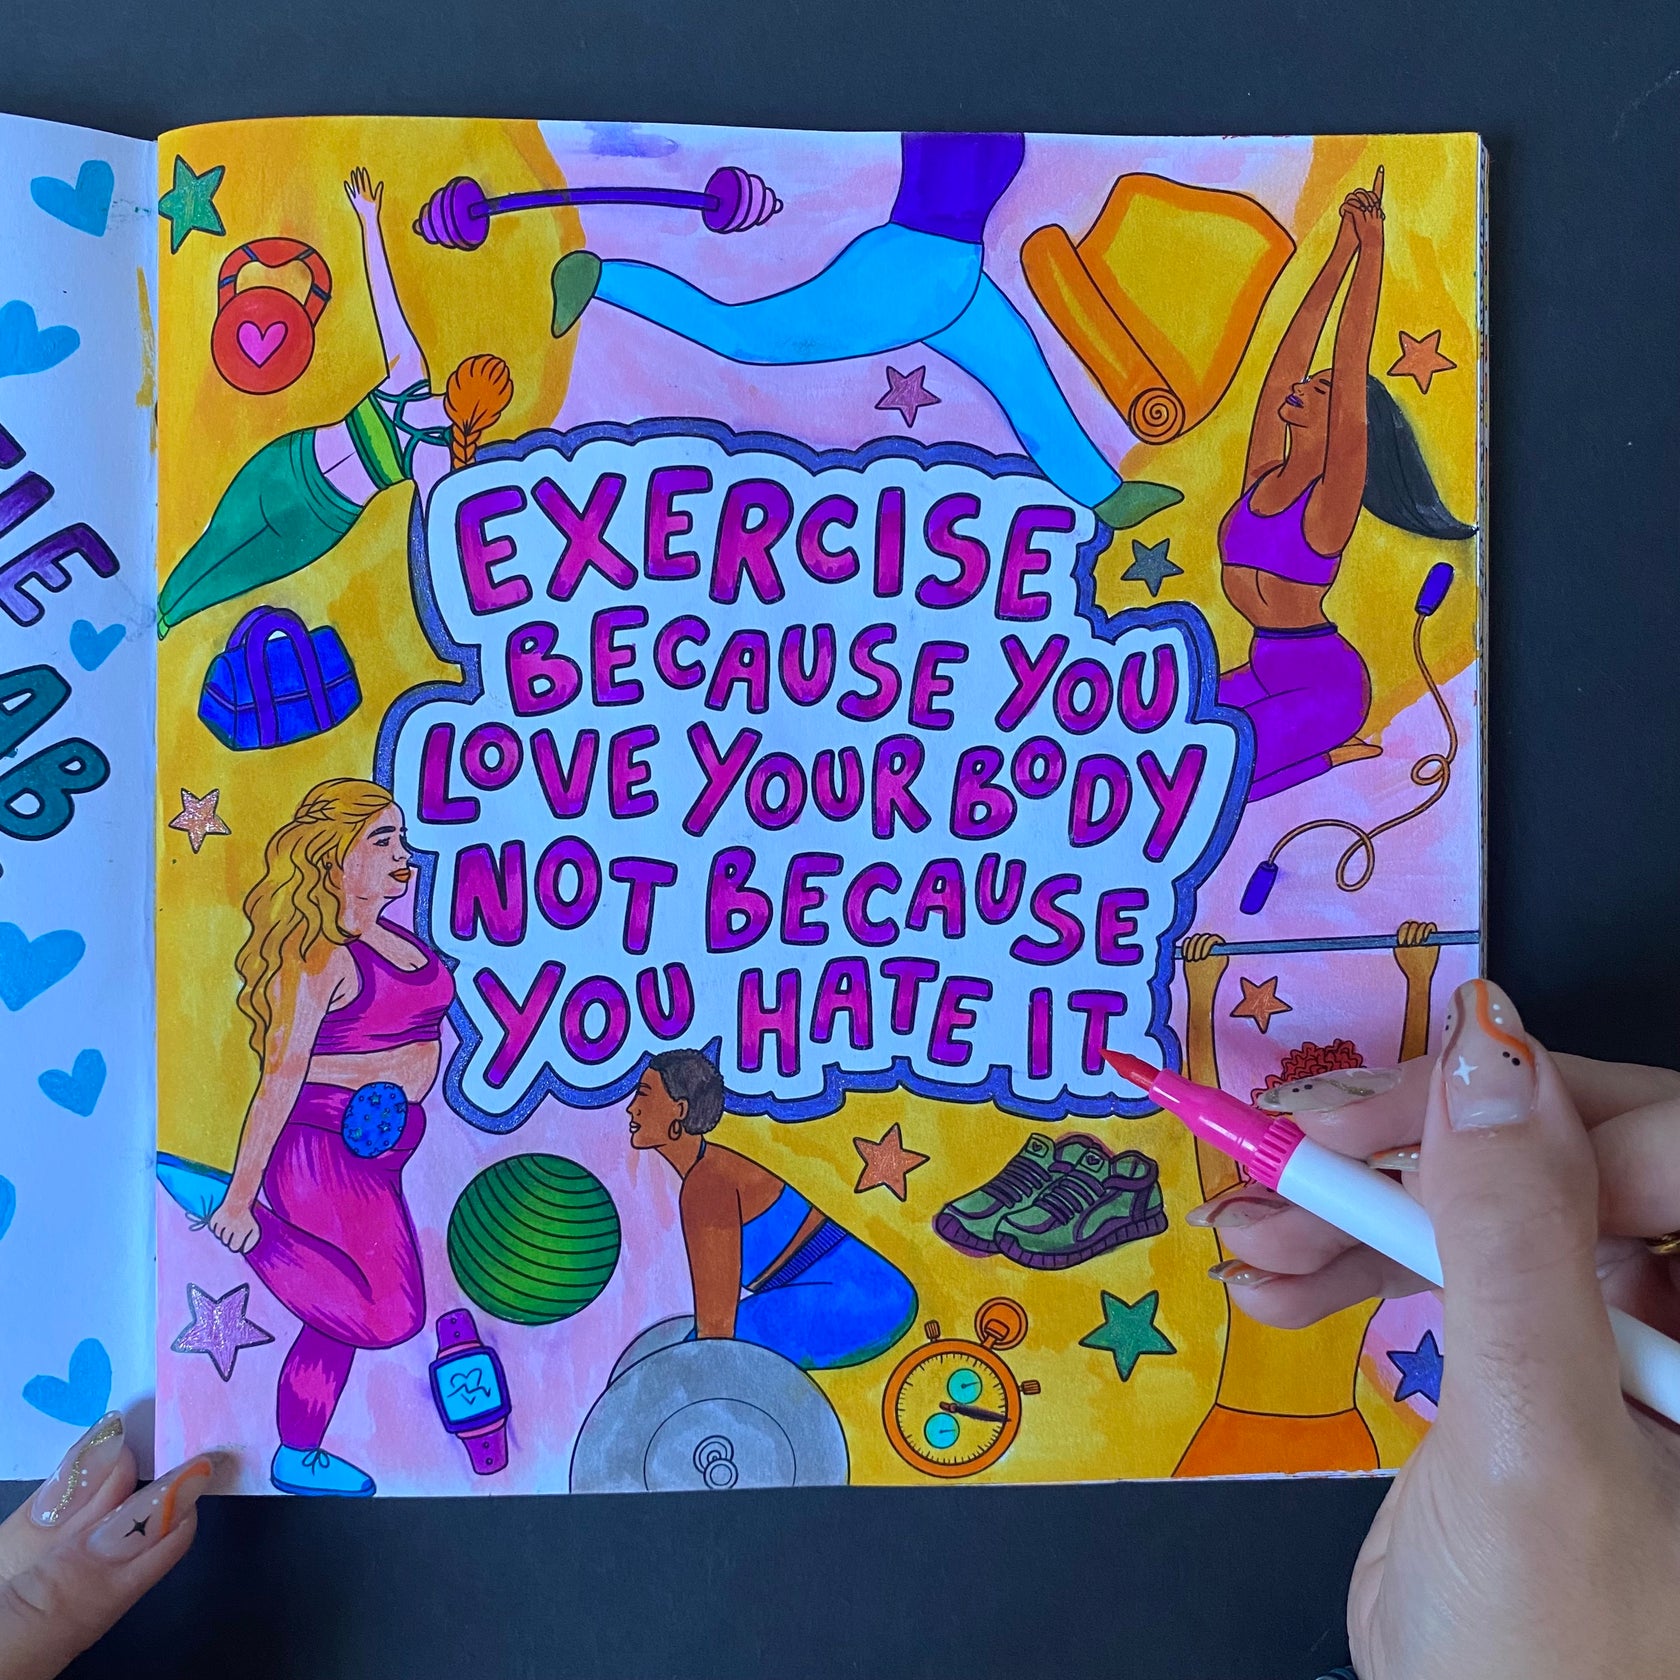 THE
AB
EXERCISE
BECAUSE YOU
LOVE YOUR BODY
NOT BECAUSE
YOU HATE IT